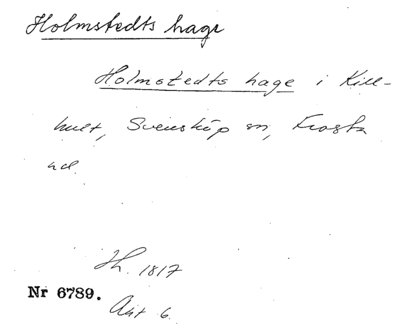 Holmstedts hage
Holmstedts hage i Kill-
hult, Svensköp sn, Frosta
hd.
Jh. 1817
Nr 6789.
Akt 6.